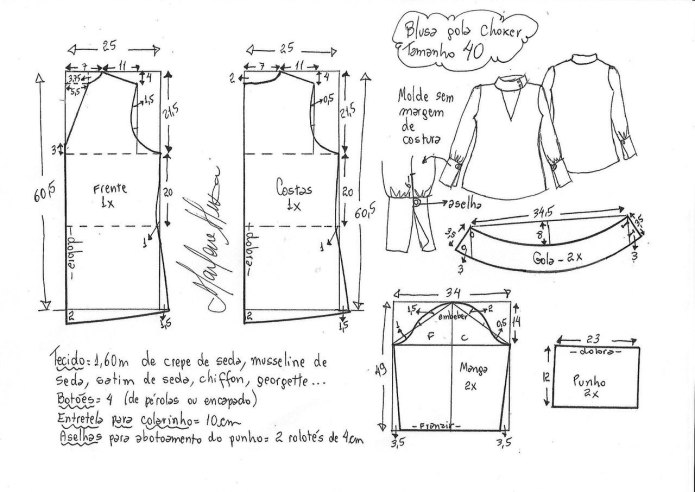 Blusa gola choker
Tamanho 40
25
7
11
3,75
5,5
4
1,5
21,5
3
60,5
Frente
1x
20
dobra
1
2
1,5
25
7
11
2
4
0,5
21,5
Costas
1x
20
60,5
dobra
1
2
1,5
Marlene Mukai
Molde sem
margem
de
costura
aselha
34,5
3,5
8
3
Gola - 2x
3
34
1,5
2
embeber
1
0,5
14
F
C
49
Manga
2x
Franzir
3,5
3,5
23
dobra
12
Punho
2x
Tecido = 1,60m de crepe de seda, musseline de
seda, satim de seda, chiffon, georgette...
Botões = 4 (de pérolas ou encapado)
Entretela para colarinho = 10cm
Aselhas para abotoamento do punho = 2 rolotés de 4cm